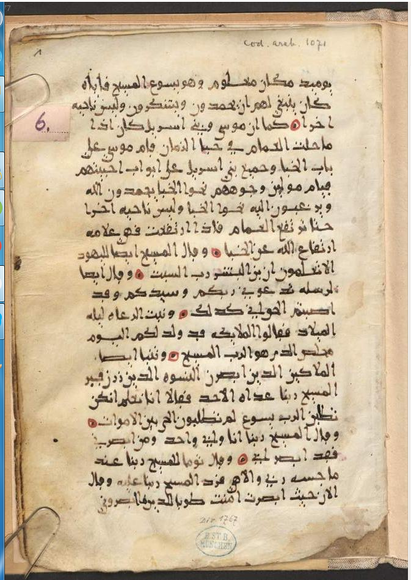 Cod. arab. 1071
1
6.
يوميذ مكان معلوم وهو يسوع المسيح فاياه
كان ينبغي لهم ان يحمدون ويشكرون وليس ناحيه
اخرا كما ان موسى وبني اسريل كان اذا
ما حلت الغمام في خبا الزمان قام موسى على
باب الخبا وجميع بني اسريل على ابواب اخبيتهم
قيام مولين وجوههم نحوا الخبا يحمدون الله
ويرغبون اليه نحوا الخبا وليس ناحيه اخرا
حتا ترتفع الغمام فاذا ارتفعت فهي علامه
ارتفاع الله عن الخبا وقال المسيح ايضا لليهود
الا تعلمون ان ابن البشر رب السبت وقال ايضا
لرسله ربكم وسيدكم وقد
اصبتم كذلك الرعاه ليله
الميلاد فقالوا الملايكه قد ولد لكم اليوم
مخلص الذي هو الرب المسيح ايضا
الملاكين الذين ابصرن النسوه الذين زرن قبر
المسيح ربنا غداه الاحد فقالا انا نعلم انكن
تطلبن الرب يسوع لم تطلبون الحي بين الاموات
وقال المسيح ربنا انا وابي واحد ومن ابصرني
فقد ابصر ابي وقال توما للمسيح ربنا عند
ما جسه ربي والاهي فرد المسيح ربنا عليه وقال
الان حيث ابصرت امنت طوبا للذين